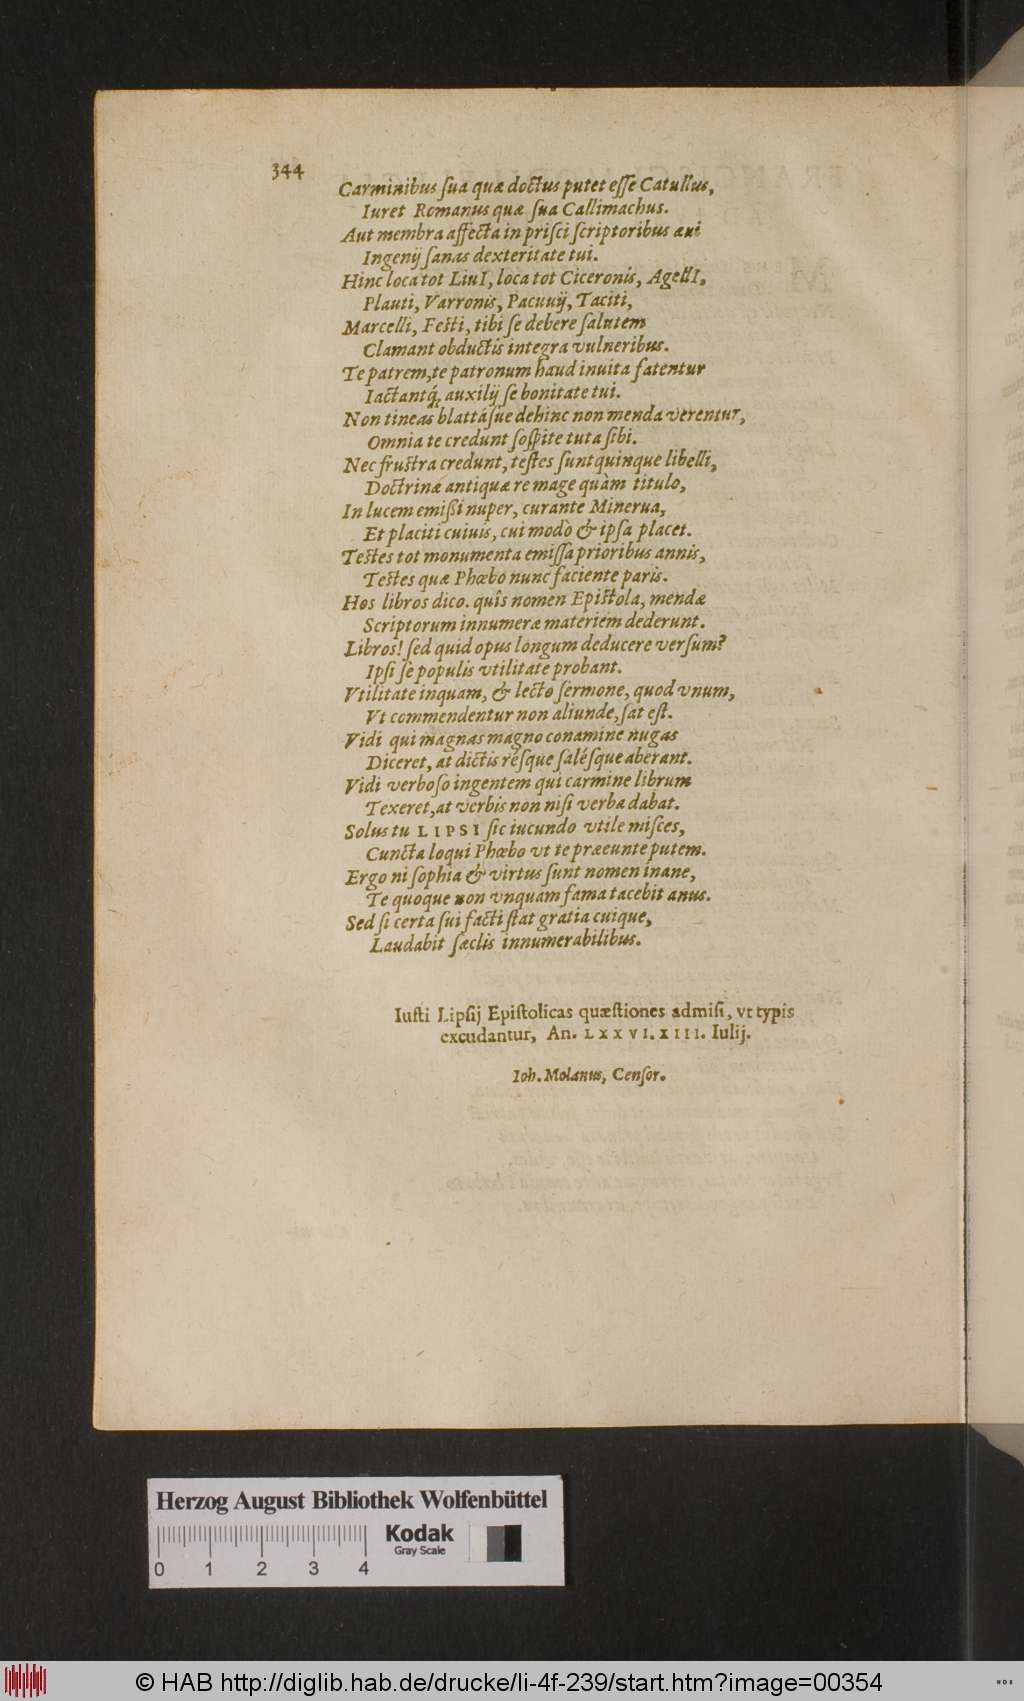 344
Carminibus ſua quæ doctus putet eſſe Catullus,
Iuret Romanus quæ ſua Callimachus.
Aut membra affecta in priſci ſcriptoribus æui
Ingenij ſanas dexteritate tui.
Hinc loca tot LiuI, loca tot Ciceronis, AgellI,
Plauti, Varronis, Pacuuij, Taciti,
Marcelli, Feſti, tibi ſe debere ſalutem
Clamant obductis integra vulneribus.
Te patrem, te patronum haud inuita fatentur
Iactantq́; auxilij ſe bonitate tui.
Non tineas blattáſue dehinc non menda verentur,
Omnia te credunt ſoſpite tuta ſibi.
Nec fruſtra credunt, teſtes ſunt quinque libelli,
Doctrinæ antiquæ re mage quàm titulo,
In lucem emißi nuper, curante Minerua,
Et placiti cuiuis, cui modò & ipſa placet.
Teſtes tot monumenta emiſſa prioribus annis,
Teſtes quæ Phœbo nunc faciente paris.
Hos libros dico. quîs nomen Epiſtola, mendæ
Scriptorum innumeræ materiem dederunt.
Libros! ſed quid opus longum deducere verſum?
Ipſi ſe populis vtilitate probant.
Vtilitate inquam, & lecto ſermone, quod vnum,
Vt commendentur non aliunde, ſat eſt.
Vidi qui magnas magno conamine nugas
Diceret, at dictis réſque ſaléſque aberant.
Vidi verboſo ingentem qui carmine librum
Texeret, at verbis non niſi verba dabat.
Solus tu LIPSI ſic iucundo vtile miſces,
Cuncta loqui Phœbo vt te præeunte putem.
Ergo ni ſophia & virtus ſunt nomen inane,
Te quoque non vnquam fama tacebit anus.
Sed ſi certa ſui facti ſtat gratia cuique,
Laudabit ſæclis innumerabilibus.
Iuſti Lipſij Epiſtolicas quæſtiones admiſi, vt typis
excudantur, An. LXXVI. XIII. Iulij.
Ioh. Molanus, Cenſor.
Herzog August Bibliothek Wolfenbüttel
Kodak
Gray Scale
0 1 2 3 4
© HAB http://diglib.hab.de/drucke/li-4f-239/start.htm?image=00354